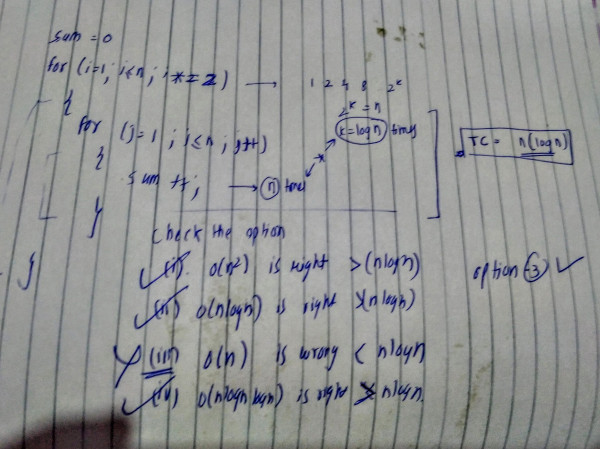 sum = 0
for (i=1; i≤n; i*=2) → 1 2 4 8 2^k
{
2^k = n
for (j=1; j≤n; j++)
k=logn times
{
TC = n(logn)
sum ++; → n times
}
check the option
(i). O(n²) is right >(nlogn)
}
option -3 ✓
(ii) O(nlogn) is right (nlogn)
(iii) O(n) is wrong < nlogn
(iv) O(nlogn logn) is right > nlogn.